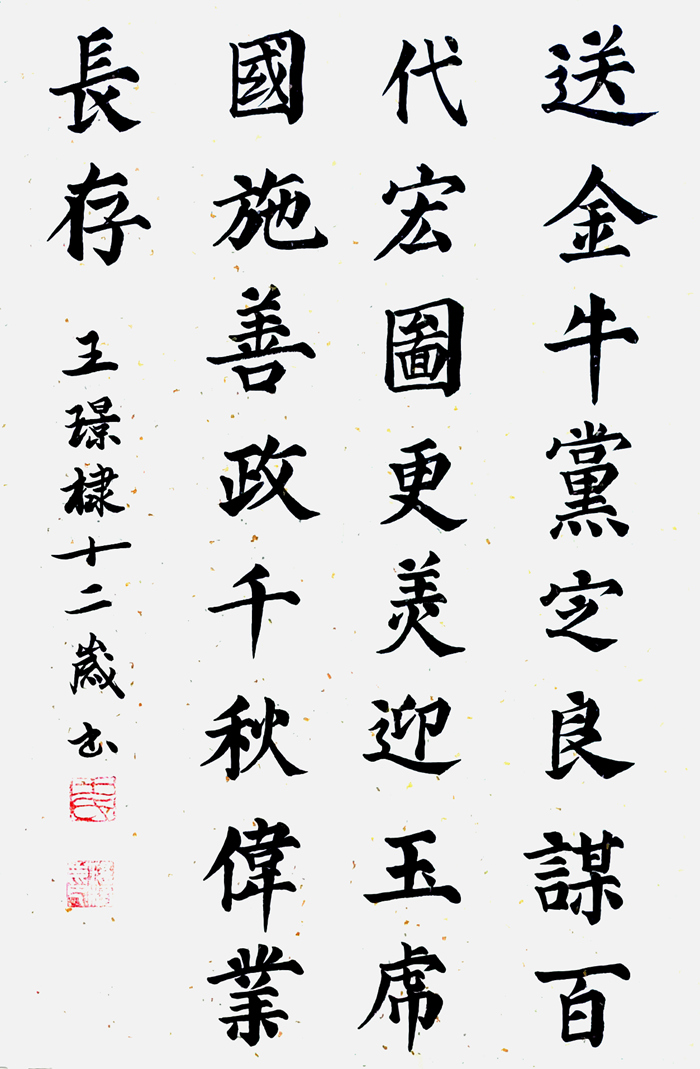 送金牛黨定良謀百
代宏圖更美迎玉虎
國施善政千秋偉業
長存
王璟棣十二歲书